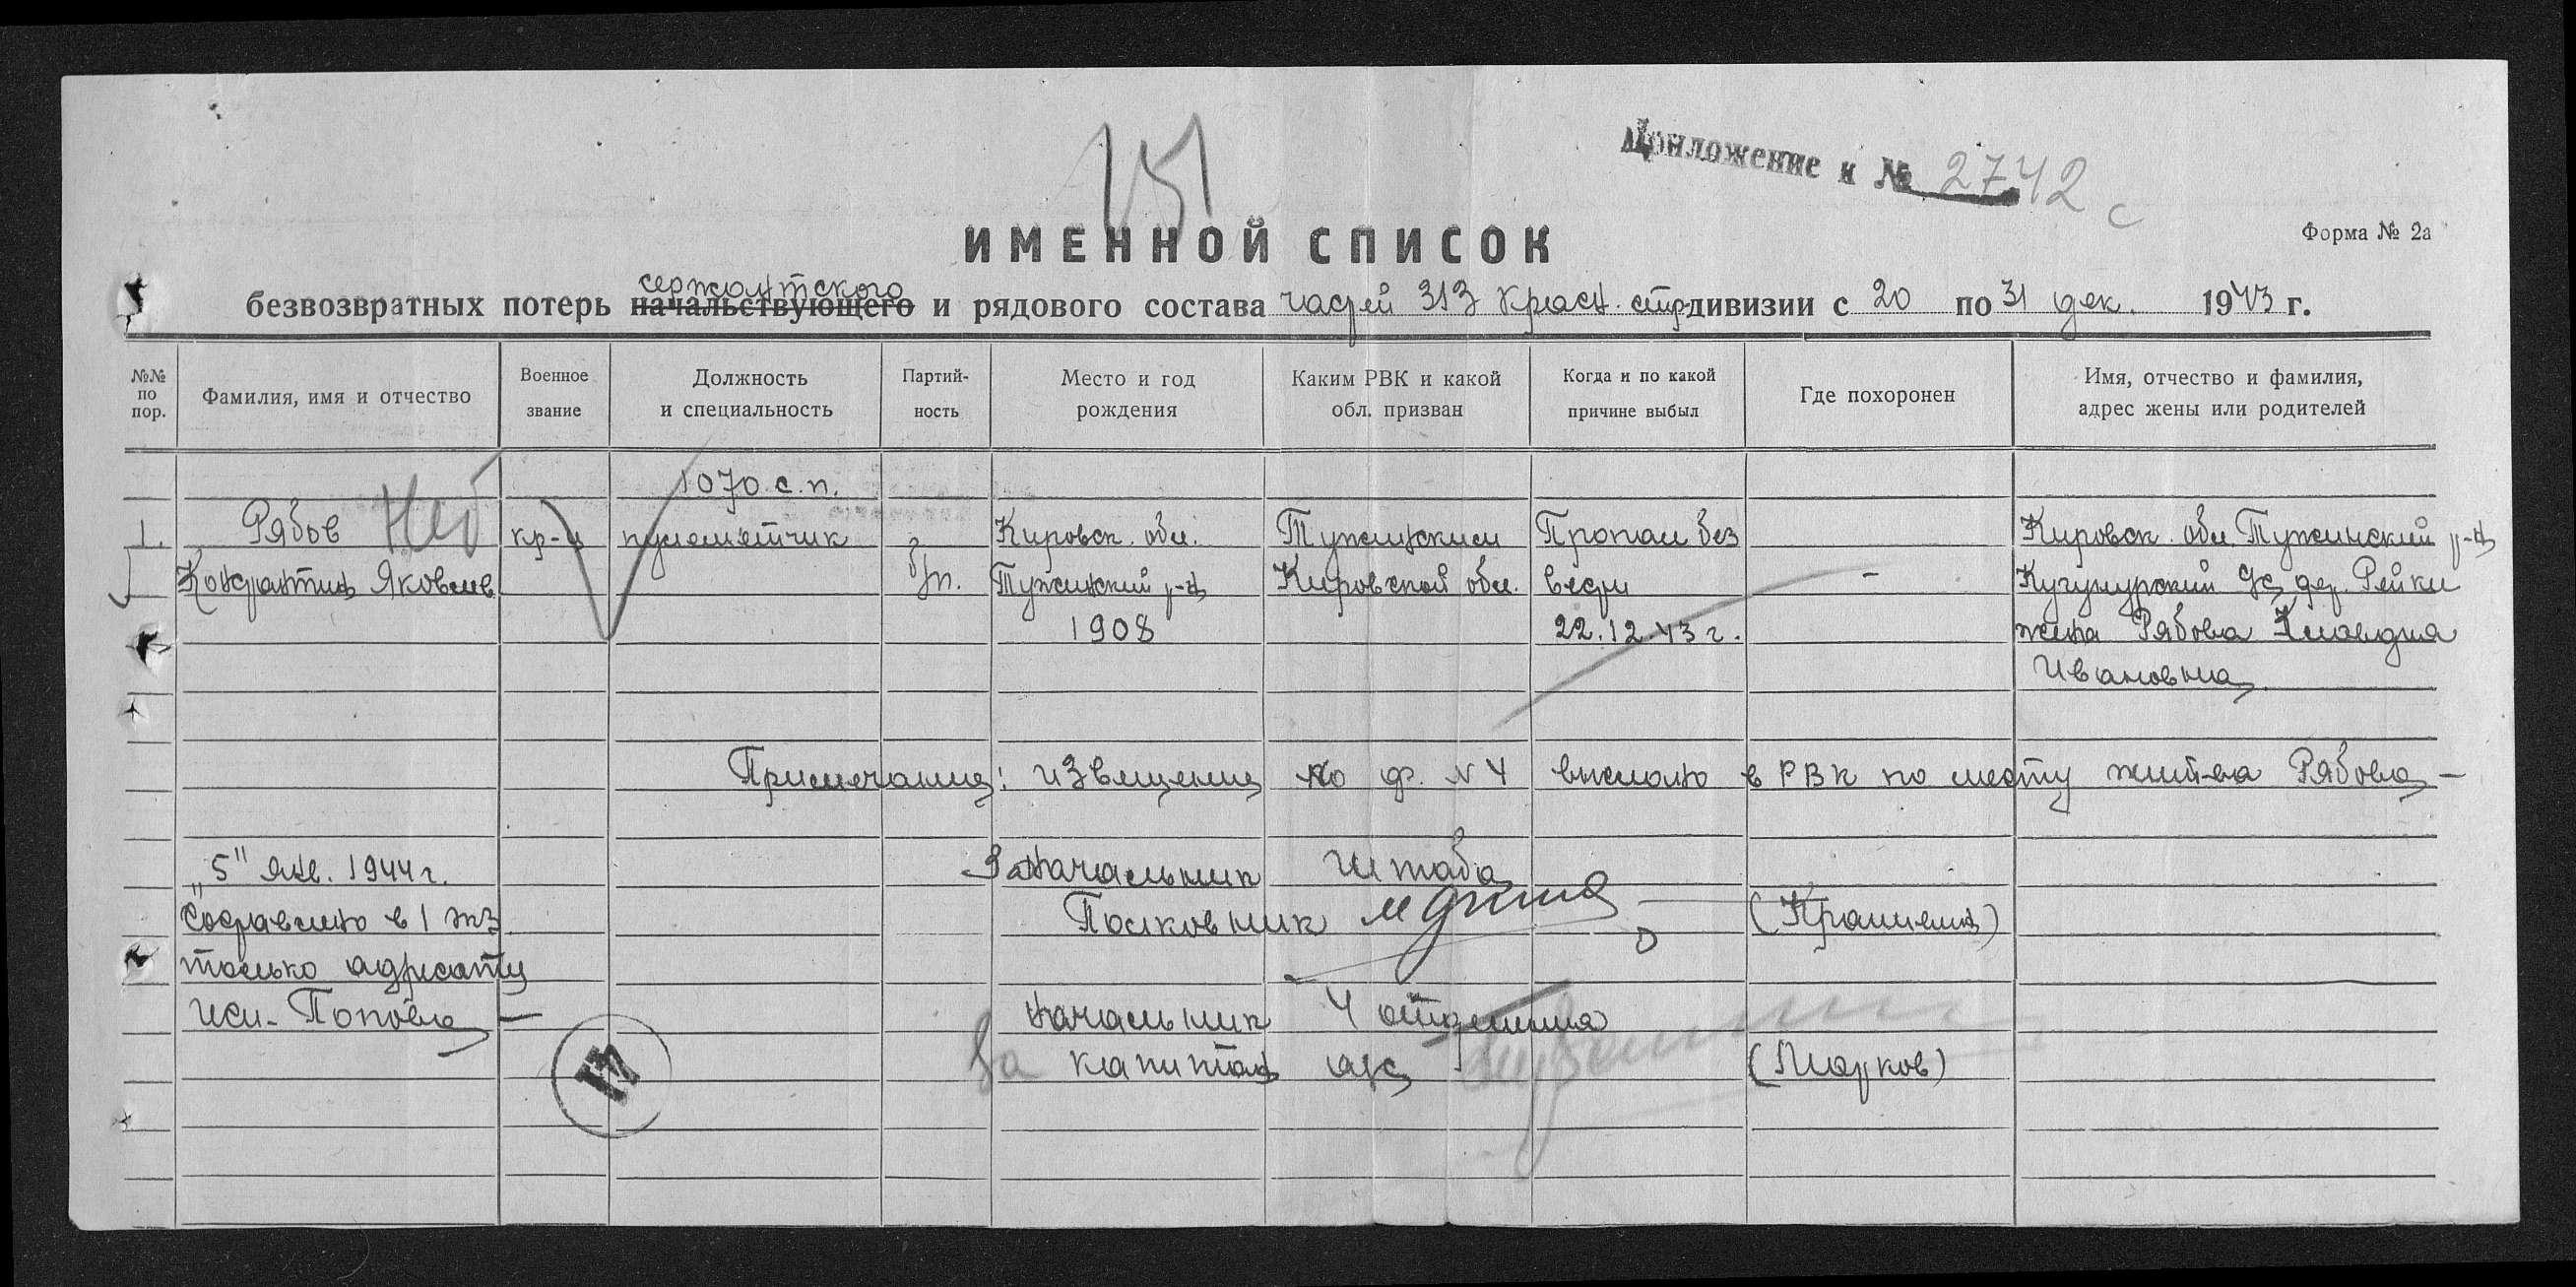 151
Приложение к № 2742 с
ИМЕННОЙ СПИСОК
Форма № 2а
сержантского
безвозвратных потерь начальствующего и рядового состава частей 313 Красн. стр. дивизии с 20 по 31 дек. 1943 г.
№№ по пор.
Фамилия, имя и отчество
Военное звание
Должность и специальность
Партий-ность
Место и год рождения
Каким РВК и какой обл. призван
Когда и по какой причине выбыл
Где похоронен
Имя, отчество и фамилия, адрес жены или родителей
1070 с.п.
1. Рябов кр-ц пулеметчик б/п. Кировск. обл. Тужинским Пропал без Кировск. обл. Тужинский р-н
Константин Яковлев Тужинский р-н Кировской обл. вести - дер. Рейки
1908 22.12.43 г. жена Рябова Клавдия
Ивановна
Примечание: извещение по ф. N 4 выслано в РВК по месту жит-ва Рябова —
"5" янв. 1944 г. Зам Начальник Штаба
Составлено в 1 экз Полковник
только адресату
исп. Попова — Начальник 4 отделения
За капитан а/с (Марков)